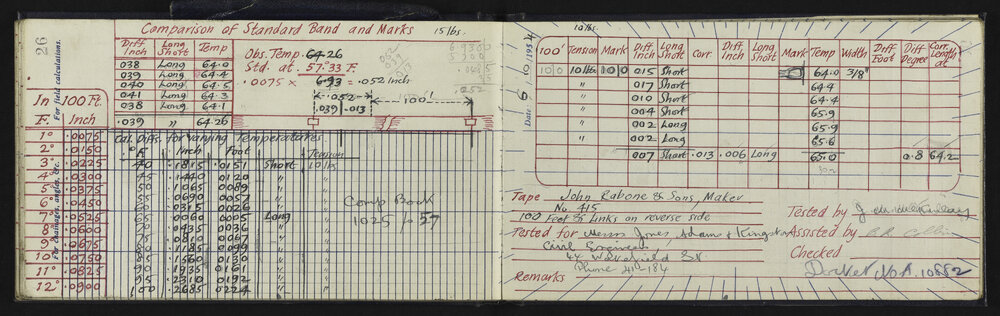 26
For field calculations.
Comparison of Standard Band and Marks 15 lbs.
Diff Inch Long Short Temp
038 Long 64.0
039 Long 64.4
040 Long 64.5
041 Long 64.3
038 Long 64.1
.039 " 64.26
Obs. Temp. 64.26
Std. at. 57.33 F.
.0075 × 6.93 = .052 inch
.052
.039 .013
100'
In 100 Ft.
F. Inch
1° .0075
2° .0150
3° .0225
4° .0300
5° .0375
6° .0450
7° .0525
8° .0600
9° .0675
10° .0750
11° .0825
12° .0900
Cal. Diffs. for varying Temperatures
°F Inch Foot Tension
40 .1815 .0151 Short 10 lbs
45 .1440 0120 " "
50 .1065 0089 " "
55 .0690 0057 " "
60 .0315 0026 " "
65 .0060 0005 Long "
70 .0435 0036 " "
75 .0810 0067 " "
80 .1185 0099 " "
85 .1560 0130 " "
90 .1935 0161 " "
95 .2310 0192 " "
100 .2685 0224 " "
Comp Book
1025 p 57
10 lbs.
Date 6 / 9 / 1954
100' Tension Mark Diff. Inch Long Short Corr. Diff. Inch Long Short Mark Temp Width Diff Foot Diff. Degree Corr. Length at
100 10 lbs 100 015 Short 64.0 3/8"
017 Short 64.4
010 Short 64.4
004 Short 65.9
002 Long 65.9
002 Long 65.6
007 Short .013 .006 Long 65.0 0.8 64.2
Tape John Rabone & Sons, Maker
No. 415
100 Feet & Links on reverse side
Tested for Messrs Jones, Adams & Kingston
Civil Engineers,
44 Wakefield St.
Phone 41-184
Remarks
Tested by
Assisted by
Checked
Docket No A. 10882